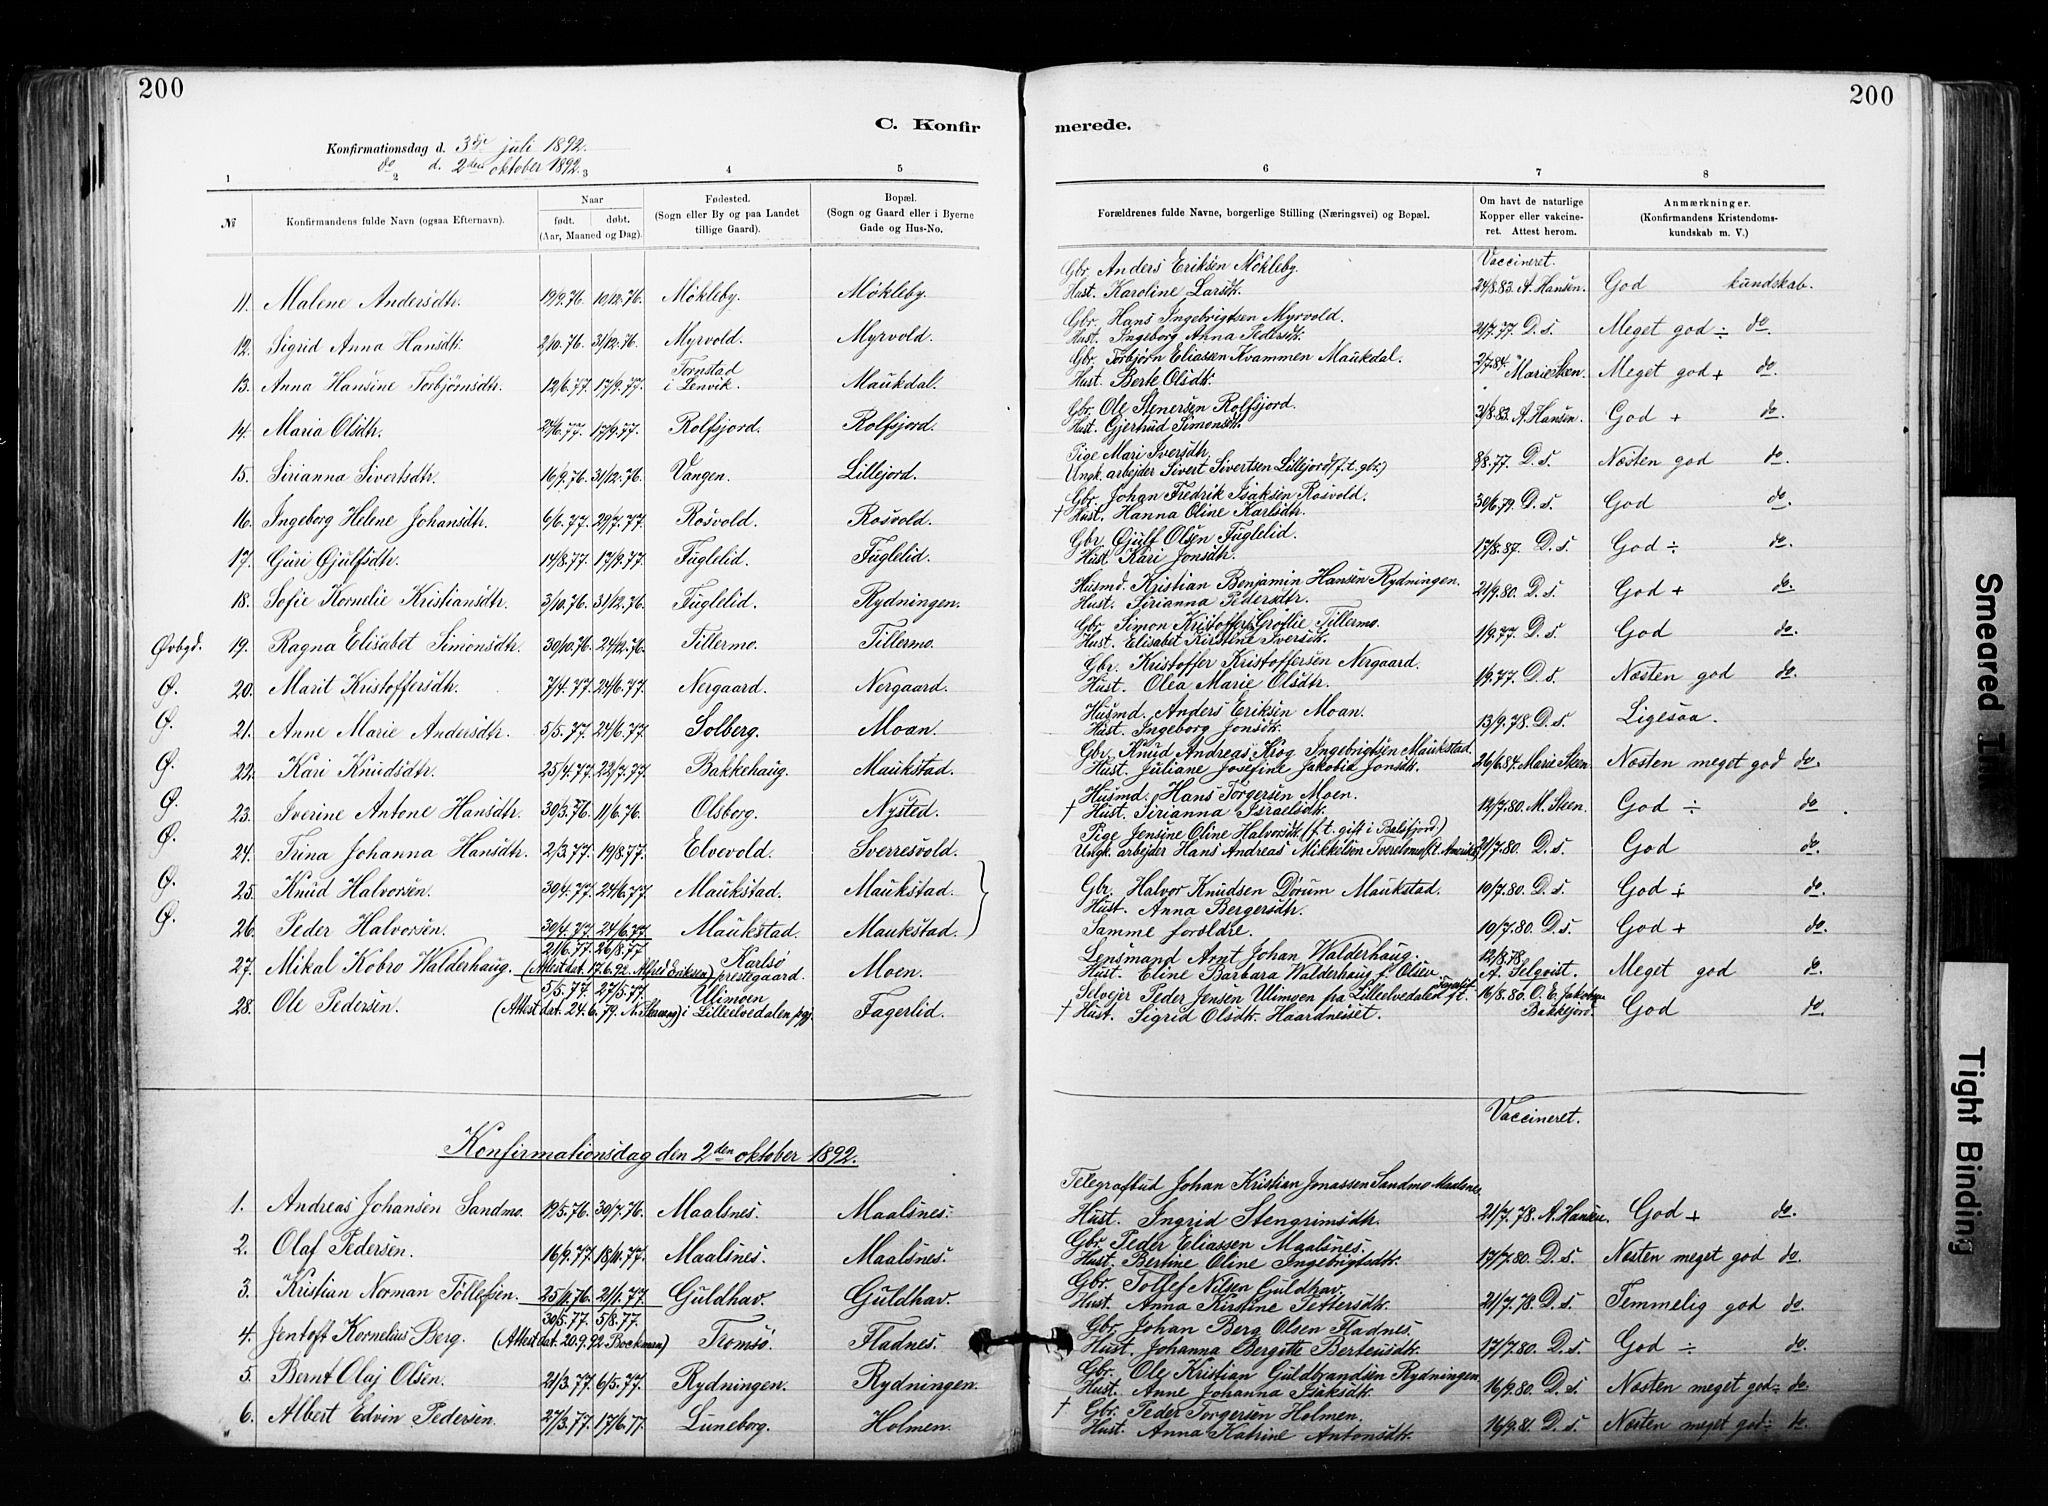 200
200
C. Konfir
merede.
Konfirmationsdag d. 3die juli 1892.
do d. 2den oktober 1892.
1 2 3 4 5 6 7 8
№
Konfirmandens fulde Navn (ogsaa Efternavn).
Naar
født. døbt.
(Aar, Maaned og Dag).
Fødested.
(Sogn eller By og paa Landet
tillige Gaard).
Bopæl.
(Sogn og Gaard eller i Byerne
Gade og Hus-No.
Forældrenes fulde Navne, borgerlige Stilling (Næringsvei) og Bopæl.
Om havt de naturlige
Kopper eller vakcine-
ret. Attest herom.
Anmærkninger.
(Konfirmandens Kristendoms-
kundskab m. V.)
Vaccineret.
Gbr. Anders Eriksen Møkleby.
11. Malene Andersdtr. 19/9.76. 10/12.76. Møkleby. Møkleby. Hust. Karoline Larsdtr. 24/8.83. A. Hansen. God kundskab.
Gbr. Hans Ingebrigtsen Myrvold.
12. Sigrid Anna Hansdtr. 2/10.76. 31/12.76. Myrvold. Myrvold. Hust. Ingeborg Anna Pedersdtr. 21/7.77. D. s. Meget god ÷ do.
Gbr. Torbjørn Eliassen Kvammen Maukdal.
13. Anna Hansine Torbjørnsdtr. 12/6.77. 17/9.77. Tornstad
i Lenvik. Maukdal. Hust. Berte Olsdtr. 2/7.84. Marie Steen. Meget god + do.
Gbr. Ole Stenersen Rolfsjord.
14. Maria Olsdtr. 27/6.77. 17/9.77. Rolfsjord. Rolfsjord. Hust. Gjertrud Simonsdtr. 31/8.83. A. Hansen. God + do.
Pige Mari Iversdtr.
15. Sirianna Sivertsdtr. 16/9.76. 31/12.76. Vangen. Lillejord. Ungk. arbejder Sivert Sivertsen Lillejord (f. t. gbr.) 8/8.77. D. s. Næsten god do.
Gbr. Johan Fredrik Isaksen Rosvold.
16. Ingeborg Helene Johansdtr. 6/6.77. 29/7.77. Rosvold. Rosvold. † Hust. Hanna Oline Karlsdtr. 30/6.79. D. s. God do.
Gbr. Gjulf Olsen Fuglelid.
17. Guri Gjulfsdtr. 14/8.77. 17/9.77. Fuglelid. Fuglelid. Hust. Kari Jonsdtr. 17/8.87. D. s. God ÷ do.
Husmd. Kristian Benjamin Hansen Rydningen.
18. Sofie Kornelie Kristiansdtr. 3/10.76. 31/12.76. Fuglelid. Rydningen. Hust. Sirianna Pedersdtr. 21/9.80. D. s. God + do.
Gbr. Simon Kristoffers. Grøtlie Tillermo.
Øvbgd. 19. Ragna Elisabet Simonsdtr. 30/10.76. 24/12.76. Tillermo. Tillermo. Hust. Elisabet Kirstine Iversdtr. 1/9.77. D. s. God do.
Gbr. Kristoffer Kristoffersen Nergaard.
Ø. 20. Marit Kristoffersdtr. 7/4.77. 24/6.77. Nergaard. Nergaard. Hust. Olea Marie Olsdtr. 1/9.77. D. s. Næsten god do.
Husmd. Anders Eriksen Moan.
Ø. 21. Anne Marie Andersdtr. 5/5.77. 24/6.77. Solberg. Moan. Hust. Ingeborg Jonsdtr. 13/9.78. D. s. Ligesaa.
Gbr. Knud Andreas Krog Ingebrigtsen Maukstad.
Ø. 22. Kari Knudsdtr. 25/4.77. 22/7.77. Bakkehaug. Maukstad. Hust. Juliane Josefine Jakobia Jonsdtr. 26/6.84. Marie Steen. Næsten meget god do.
Husmd. Hans Torgersen Moen.
Ø. 23. Iverine Antone Hansdtr. 30/3.76. 11/6.76. Olsborg. Nysted. † Hust. Sirianna Israelsdtr. 12/7.80. M. Steen. God ÷ do.
Pige Jensine Oline Halvorsdtr. (f. t. gift i Balsfjord)
Ø. 24. Trina Johanna Hansdtr. 2/3.77. 19/8.77. Elvevold. Sverresvold. Ungk. arbejder Hans Andreas Mikkelsen Tverelvmo f. t. Amerika. 21/7.80. D. s. God do.
Ø. 25. Knud Halvorsen. 30/4.77. 24/6.77. Maukstad. Maukstad. Gbr. Halvor Knudsen Dørum Maukstad. 10/7.80. D. s. God ÷ do.
Hust. Anna Bergersdtr.
Ø. 26. Peder Halvorsen. 30/4.77. 24/6.77. Maukstad. Maukstad. Samme foreldre. 10/7.80. D. s. God + do.
21/6.77. 26/8.77 Karlsø Lensmand Arnt Johan Walderhaug. 12/8.78.
27. Mikal Kobro Walderhaug. (Attest dat. 17.6.92. Alfred Eriksen) prestegaard. Moen. Hust. Eline Barbara Walderhaug f. Olsen A. Selqvist. Meget god do.
5/5.77. 27/5.77. Ulimoen Selvejer Peder Jensen Ulimoen fra Lilleelvedalen f. t. 16/8.80. O. E. Jakobsen
28. Ole Pedersen. (Attest dat. 24.6.79. N. Skavang) i Lilleelvedalen pgj. Fagerlid. † Hust. Sigrid Olsdtr. Haardneiset. Bakkejord. God do.
Vaccineret.
Konfirmationsdag den 2den oktober 1892.
Telegrafbud Johan Kristian Jonassen Sandmo Maalsnes.
1. Andreas Johansen Sandmo. 19/5.76. 30/7.76. Maalsnes. Maalsnes. Hust. Ingrid Stengrimsdtr. 21/7.78. A. Hansen. God + do.
Gbr. Peder Eliassen Maalsnes.
2. Olaf Pedersen. 16/9.77. 18/11.77. Maalsnes. Maalsnes. Hust. Bertine Oline Ingebrigtsdtr. 17/7.80. D. s. Næsten meget god do.
Gbr. Tollef Nilsen Guldhav.
3. Kristian Norman Tollefsen. 25/11.76. 21/1.77. Guldhav. Guldhav. Hust. Anna Kirstine Pettersdtr. 21/7.78. D. s. Temmelig god do.
30/5.77. 5/8.77. Gbr. Johan Berg Olsen Fladnes.
4. Jentoft Kornelius Berg. (Attest dat. 20.9.92 Bockman) Tromsø. Fladnes. Hust. Johanna Bergitte Berteusdtr. 17/7.80. D. s. God ÷ do.
Gbr. Ole Kristian Guldbrandsen Rydningen.
5. Bernt Olaj Olsen. 21/3.77. 6/5.77. Rydningen. Rydningen. Hust. Anne Johanna Isaksdtr. 16/9.80. D. s. Næsten meget god ÷ do.
† Gbr. Peder Torgersen Holmen.
6. Albert Edvin Pedersen. 27/3.77. 17/6.77. Luneborg. Holmen. Hust. Anna Katrine Antonsdtr. 16/9.81. D. s. Næsten meget god ÷ do.
Smeared Ink
Tight Binding